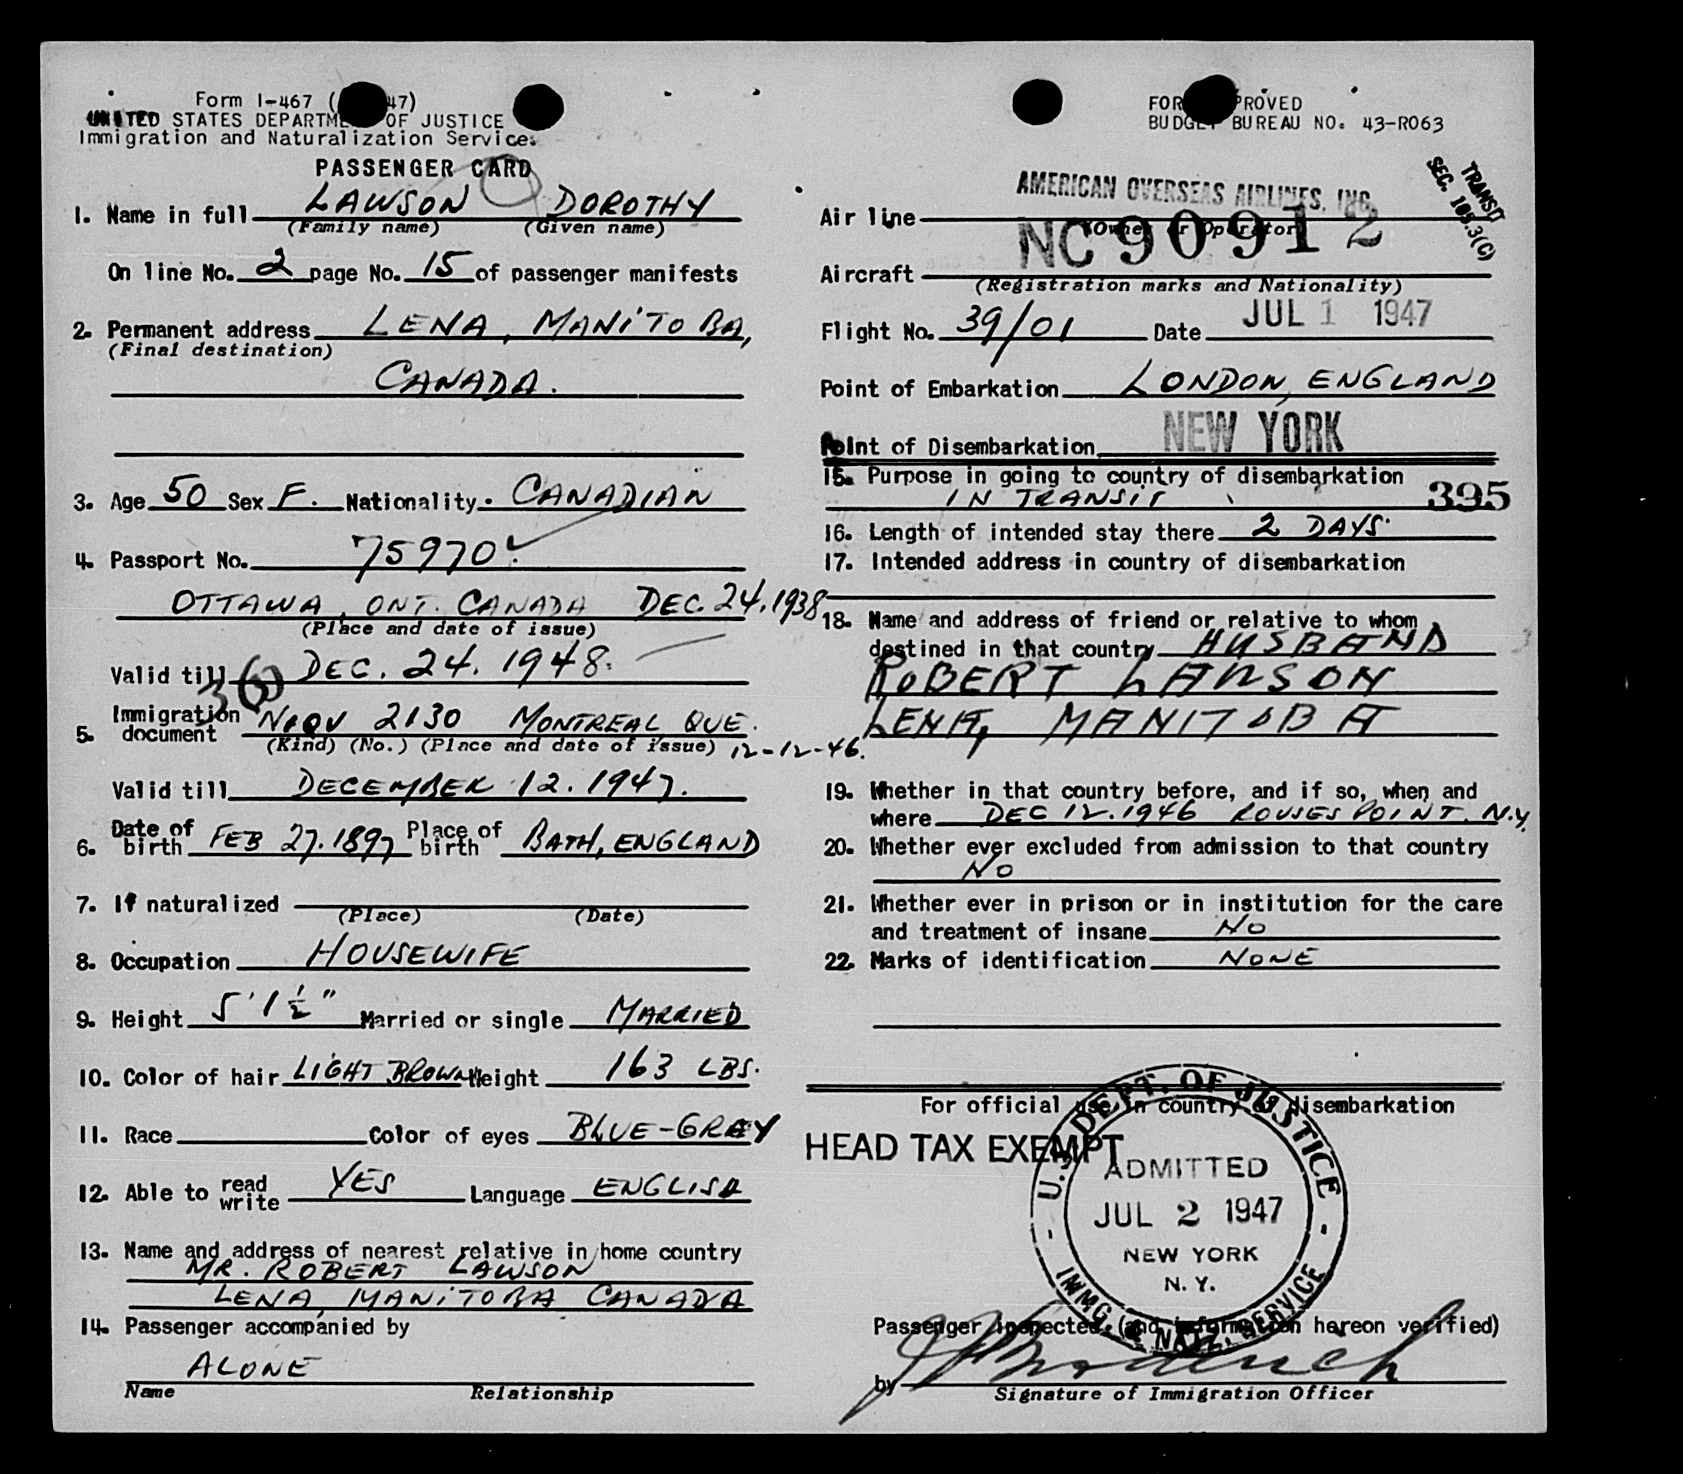 Form I-467 ( 47)
UNITED STATES DEPARTME OF JUSTICE
Immigration and Naturalization Service
PASSENGER CARD
1. Name in full LAWSON DOROTHY
(Family name) (Given name)
On line No. 2 page No. 15 of passenger manifests
2. Permanent address LENA, MANITOBA,
(Final destination)
CANADA.
3. Age 50 Sex F. Nationality. CANADIAN
4. Passport No. 75970
OTTAWA, ONT. CANADA DEC. 24. 1938
(Place and date of issue)
Valid till DEC. 24. 1948.
5. Immigration document NIQV 2130 MONTREAL, QUE.
(Kind) (No.) (Place and date of issue) 12-12-46.
Valid till DECEMBER 12. 1947.
6. Date of birth FEB 27. 1897 Place of birth BATH, ENGLAND
7. If naturalized
(Place) (Date)
8. Occupation HOUSEWIFE
9. Height 5' 1½" Married or single MARRIED
10. Color of hair LIGHT BROWN Weight 163 LBS.
11. Race Color of eyes BLUE-GREY
12. Able to read write YES Language ENGLISH
13. Name and address of nearest relative in home country
MR. ROBERT LAWSON
LENA, MANITOBA CANADA
14. Passenger accompanied by
ALONE
Name Relationship
FOR PROVED
BUDGET BUREAU NO. 43-R063
TRANSIT
SEC. 105.3(C)
Air line AMERICAN OVERSEAS AIRLINES, INC.
(Owner or Operator)
Aircraft NC 90912
(Registration marks and Nationality)
Flight No. 39/01 Date JUL 1 1947
Point of Embarkation LONDON, ENGLAND
Point of Disembarkation NEW YORK
15. Purpose in going to country of disembarkation
IN TRANSIT 395
16. Length of intended stay there 2 DAYS.
17. Intended address in country of disembarkation
18. Name and address of friend or relative to whom
destined in that country HUSBAND
ROBERT LAWSON
LENA, MANITOBA
19. Whether in that country before, and if so, when and
where DEC 12. 1946 ROUSES POINT. N.Y.
20. Whether ever excluded from admission to that country
NO
21. Whether ever in prison or in institution for the care
and treatment of insane NO
22. Marks of identification NONE
For official use in country of disembarkation
HEAD TAX EXEMPT
U.S. DEPT. OF JUSTICE
ADMITTED
JUL 2 1947
NEW YORK
N. Y.
IMMG. & NATZ. SERVICE
Passenger inspected, (and information hereon verified)
by
Signature of Immigration Officer